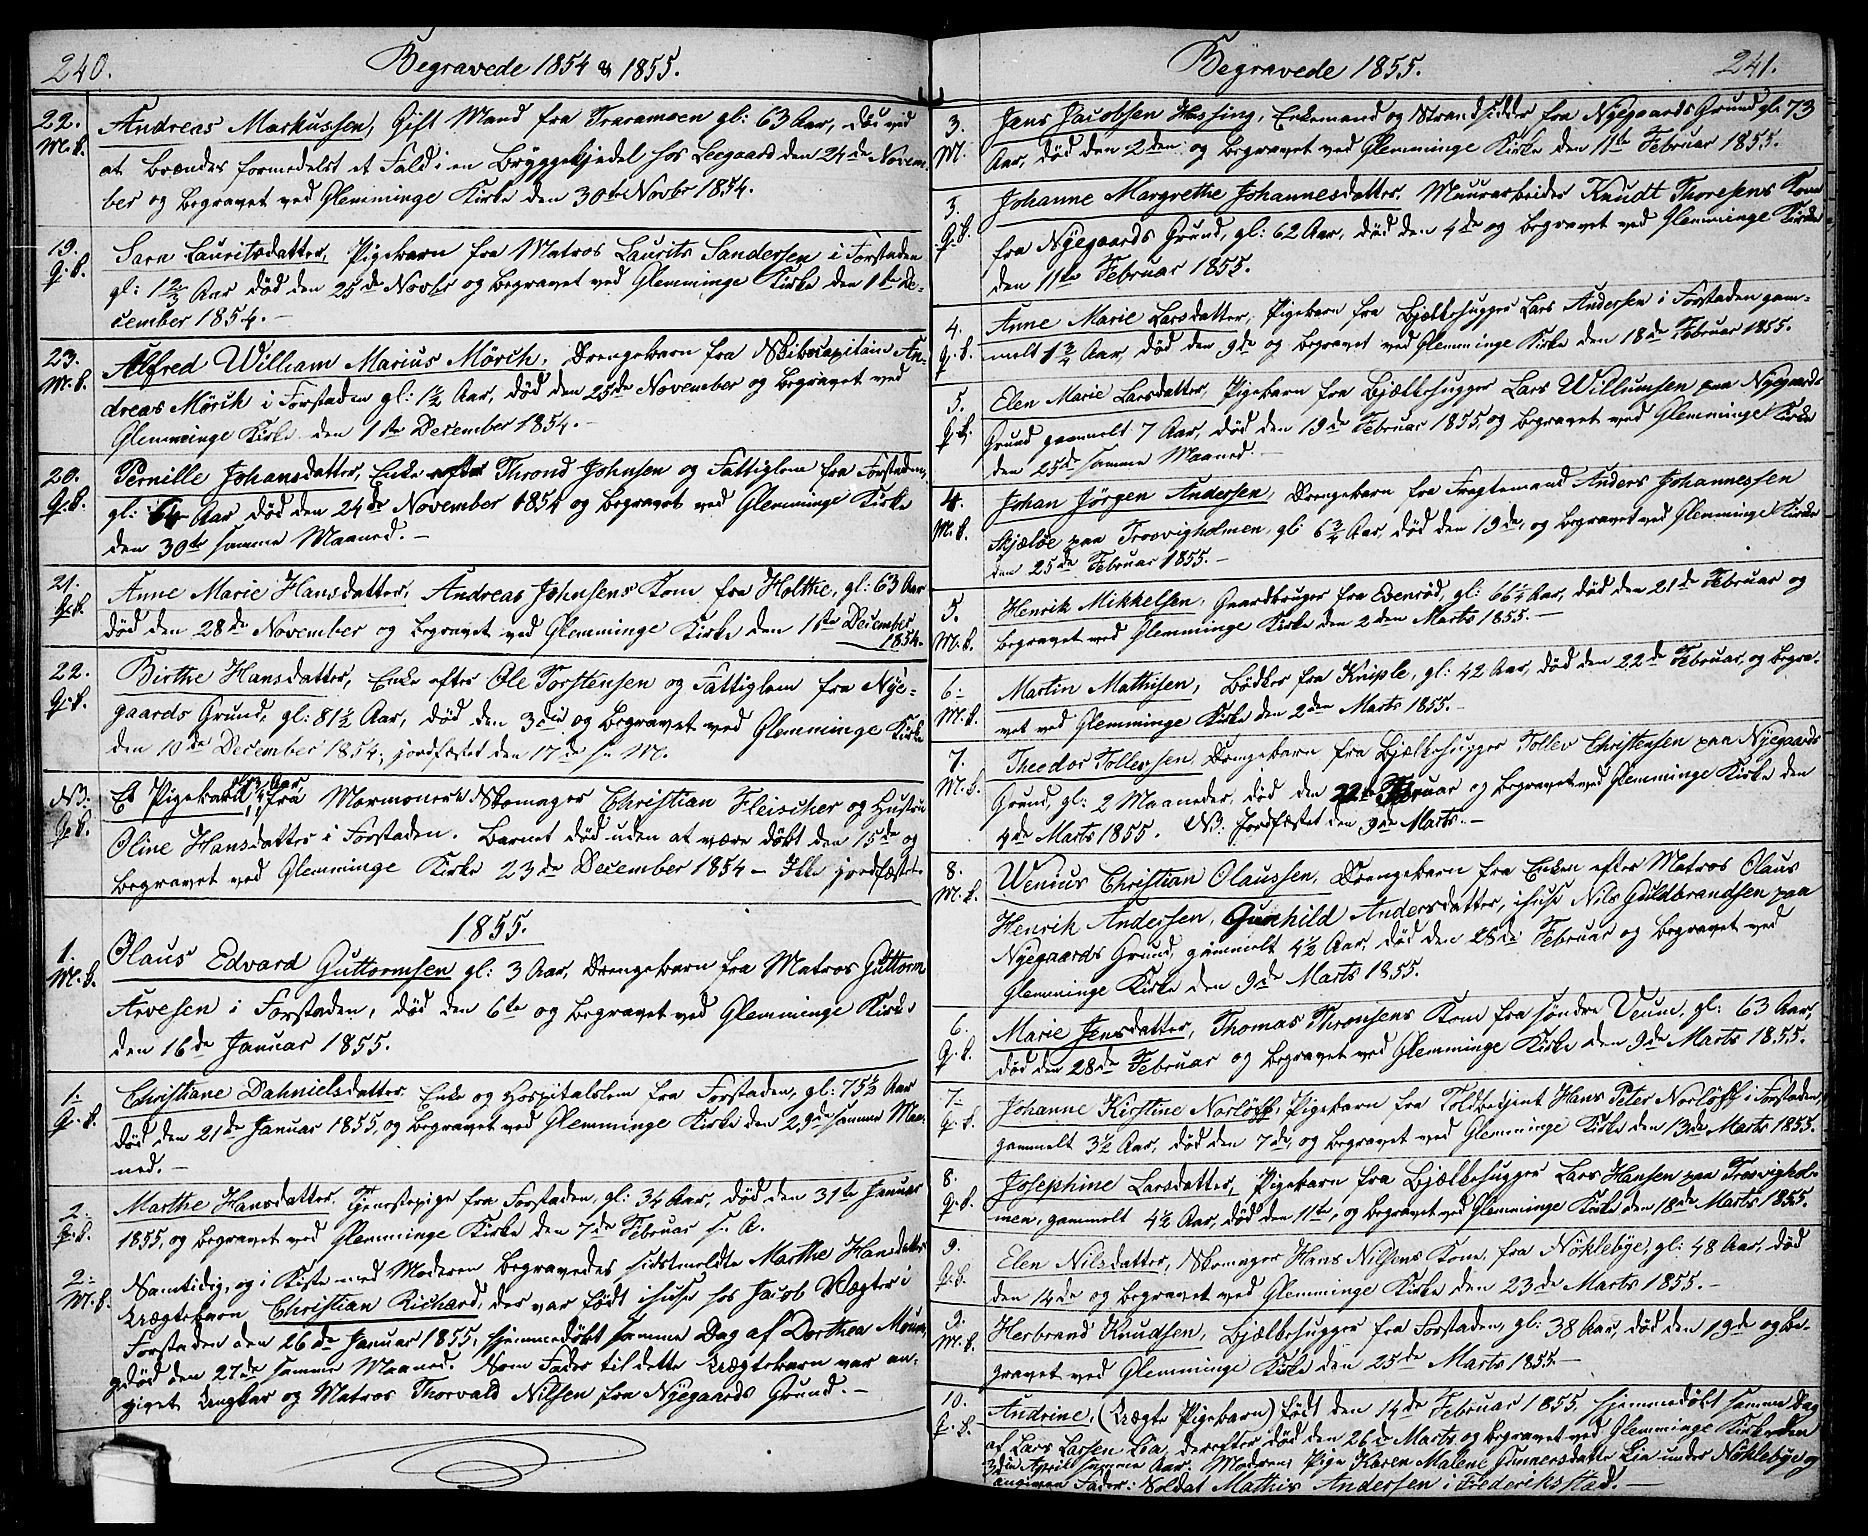 240.
Begravede 1854 & 1855.
22.
M.k.
Andreas Markussen, Gift Mand fra Traramoen gl: 63 Aar, død ved
at brændes formedelst et Fald i en Bryggekjedel hos Leegaard den 24de Novem-
ber og begravet ved Glemminge Kirke den 30te Novbr 1854.
19.
Q.k.
Sara Lauritsdatter, Pigebarn fra Matros Laurits Sandersen i Forstaden
gl: 1 2/3 Aar død den 25de Novbr og begravet ved Glemminge Kirke den 1te De-
cember 1854.-
23.
M.k.
Alfred William Marius Mörch, Drengebarn fra Skibscapitain An-
dreas Mörch i Forstaden gl: 1½ Aar, død den 25de November og begravet ved
Glemminge Kirke den 1ste December 1854.-
20.
Q.k.
Pernille Johansdatter, Enke efter Thrond Johnsen og Fattiglem fra Forstaden,
gl: 64 Aar død den 24de November 1854 og begravet ved Glemminge Kirke
den 30te samme Maaned.-
21.
Q.k.
Anne Marie Hansdatter, Andreas Johnsens Kone fra Holthe, gl: 63 Aar
død den 28de November og begravet ved Glemminge Kirke den 1ste December
1854.
22.
Q.k.
Birthe Hansdatter, Enke efter Ole Torstensen og Fattiglem fra Nye-
gaards Grund, gl: 81½ Aar, død den 3die og begravet ved Glemminge Kirke
den 10de December 1854, jordfæstet den 17de s. M.
NB.
Q.k.
Et Pigebarn fra Mormonerne Skomager Christian Fleischer og Hustru
Oline Hansdatter i Forstaden. Barnet død uden at være døbt den 15de og
begravet ved Glemminge Kirke 23de December 1854 - Ikke jordfæstet.
1855.
1.
M.k.
Olaus Edvard Guttormsen gl: 3 Aar, Drengebarn fra Matros Guttorm
Arvesen i Forstaden, død den 6te og begravet ved Glemminge Kirke
den 16de Januar 1855.
1.
Q.k.
Christiane Dahnielsdatter Enke og Hospitalslem fra Forstaden, gl: 75½ Aar
død den 21de Januar 1855, og begravet ved Glemminge Kirke den 29de samme Maa-
ned.-
2.
Q.k.
Marthe Hansdatter, Tjenestepige fra Forstaden, gl: 34 Aar, død den 31te Januar
1855, og begravet ved Glemminge Kirke den 7de Februar s. A.
2.
M.k.
Samtidig, og i Kiste med Moderen begravedes sidstmeldte Marthe Hansdatters
Uægtebarn Christian Richard, der var født i huse hos Jacob Vægter i
Forstaden den 26de Januar 1855, hjemmedøbt samme Dag af Dorthea Moum,
død den 27de samme Maaned. Som Fader til dette Uægtebarn var an-
givet Ungkar og Matros Thorvald Nilsen fra Nyegaards Grund.-
Begravede 1855.
241.
3.
M.
Jens Jacobsen Hassing, Enkemand og Strandsidder fra Nyegaards Grund gl: 73
Aar, død den 2den og begravet ved Glemminge Kirke den 11te Februar 1855.
3.
Q.k.
Johanne Margrethe Johannesdatter, Muurarbeider Knudt Thoresens Kone
fra Nyegaards Grund, gl: 62 Aar, død den 4de og begravet ved Glemminge Kirke
den 11te Februar 1855.
4.
Q.k.
Anne Marie Larsdatter, Pigebarn fra Bjælkehugger Lars Andersen i Forstaden gam-
melt 1¾ Aar, død den 9de og begravet ved Glemminge Kirke den 18de Februar 1855.
5.
Q.k.
Elen Marie Larsdatter, Pigebarn fra Bjælkehugger Lars Willumsen paa Nyegaards
Grund gammelt 7 Aar, død den 19de Februar 1855, og begravet ved Glemminge Kirke
den 25de samme Maaned.-
4.
M.k.
Johan Jörgen Andersen, Drengebarn fra Fragtemand Anders Johannessen
Skjæløe paa Trosvigholmen, gl: 6¾ Aar, død den 19de, og begravet ved Glemminge Kirke
den 25de Februar 1855.-
5.
M.k.
Henrik Mikkelsen, Gaardbruger fra Evenrød, gl: 66½ Aar, død den 21de Februar og
begravet ved Glemminge Kirke den 2den Marts 1855.-
6.
M.k.
Martin Mathisen, Bødker fra Kniple, gl: 42 Aar, død den 22de Februar, og begra-
vet ved Glemminge Kirke den 2den Marts 1855.-
7.
M.k.
Theodor Tollevsen, Drengebarn fra Bjælkehugger Tollev Christensen paa Nyegaards
Grund, gl: 2 Maaneder, død den 22de Februar og begravet ved Glemminge Kirke den
4de Marts 1855. NB: Jordfæstet den 9de Marts.-
8.
M.k.
Wenius Christian Olaussen, Drengebarn fra Enken efter Matros Olaus
Henrik Andersen, Gunhild Andersdatter, i huse Nils Guldbrandsen paa
Nyegaards Grund, gammelt 4½ Aar, død den 28de Februar og begravet ved
Glemminge Kirke den 9de Marts 1855.
6.
Q.k.
Marie Jensdatter, Thomas Thronsens Kone fra søndre Veum, gl: 63 Aar,
død den 28de Februar og begravet ved Glemminge Kirke den 9de Marts 1855.
7.
Q.k.
Johanne Kirstine Norløff, Pigebarn fra Toldbetjent Hans Peter Norløff i Forstaden,
gammelt 3½ Aar, død den 7de, og begravet ved Glemminge Kirke den 13de Marts 1855.
8.
Q.k.
Josephine Larsdatter, Pigebarn fra Bjælkehugger Lars Hansen paa Trosvighol-
men, gammelt 4½ Aar, død den 11te, og begravet ved Glemminge Kirke den 18de Marts 1855.
9.
Q.k.
Elen Nilsdatter, Skomager Hans Nilsens Kone, fra Nøklebye, gl: 48 Aar, død
den 14de og begravet ved Glemminge Kirke den 23de Marts 1855.-
9.
M.k.
Herbrand Knudsen, Bjælkehugger fra Forstaden, gl: 38 Aar, død den 19de og be-
gravet ved Glemminge Kirke den 25de Marts 1855.-
10.
Q.k.
Andrine, (Uægte Pigebarn) født den 14de Februar 1855, hjemmedøbt samme Dag
af Lars Larsen Lia, derefter død den 26de Marts og begravet ved Glemminge Kirke den
3die April samme Aar. Moderen: Pige Karen Malene Gunnersdatter Lia under Nøklebye og
angiven Fader: Soldat Mathis Andersen i Frederiksstad.-